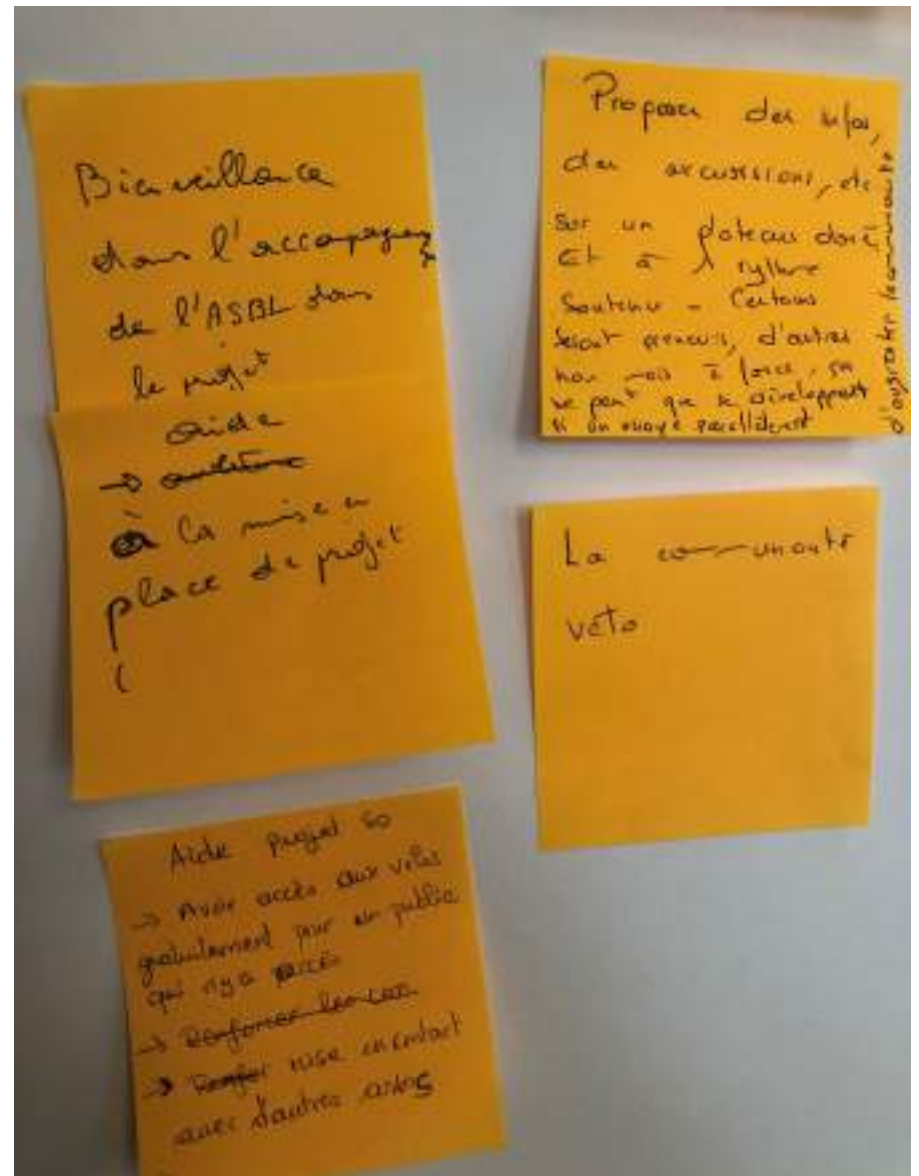 Bienveillance
dans l'accompagnem
de l'ASBL dans
le projet
aide
→
à la mise en
place de projet
(
Proposer des infos,
des excussions, etc
sur un plateau doré,
Et à 1 rythme
soutenu - Certains
seront preneurs, d'autres
non mais à force, ça
ne peut que se
si on essaye parallèlement
d'augmenter la communauté
La communauté
vélo
Aide projet so
→ Avoir accès aux vélos
gratuitement pour un public
qui n'y a accès
→ Renforcer
→ mise en contact
avec d'autres asbls